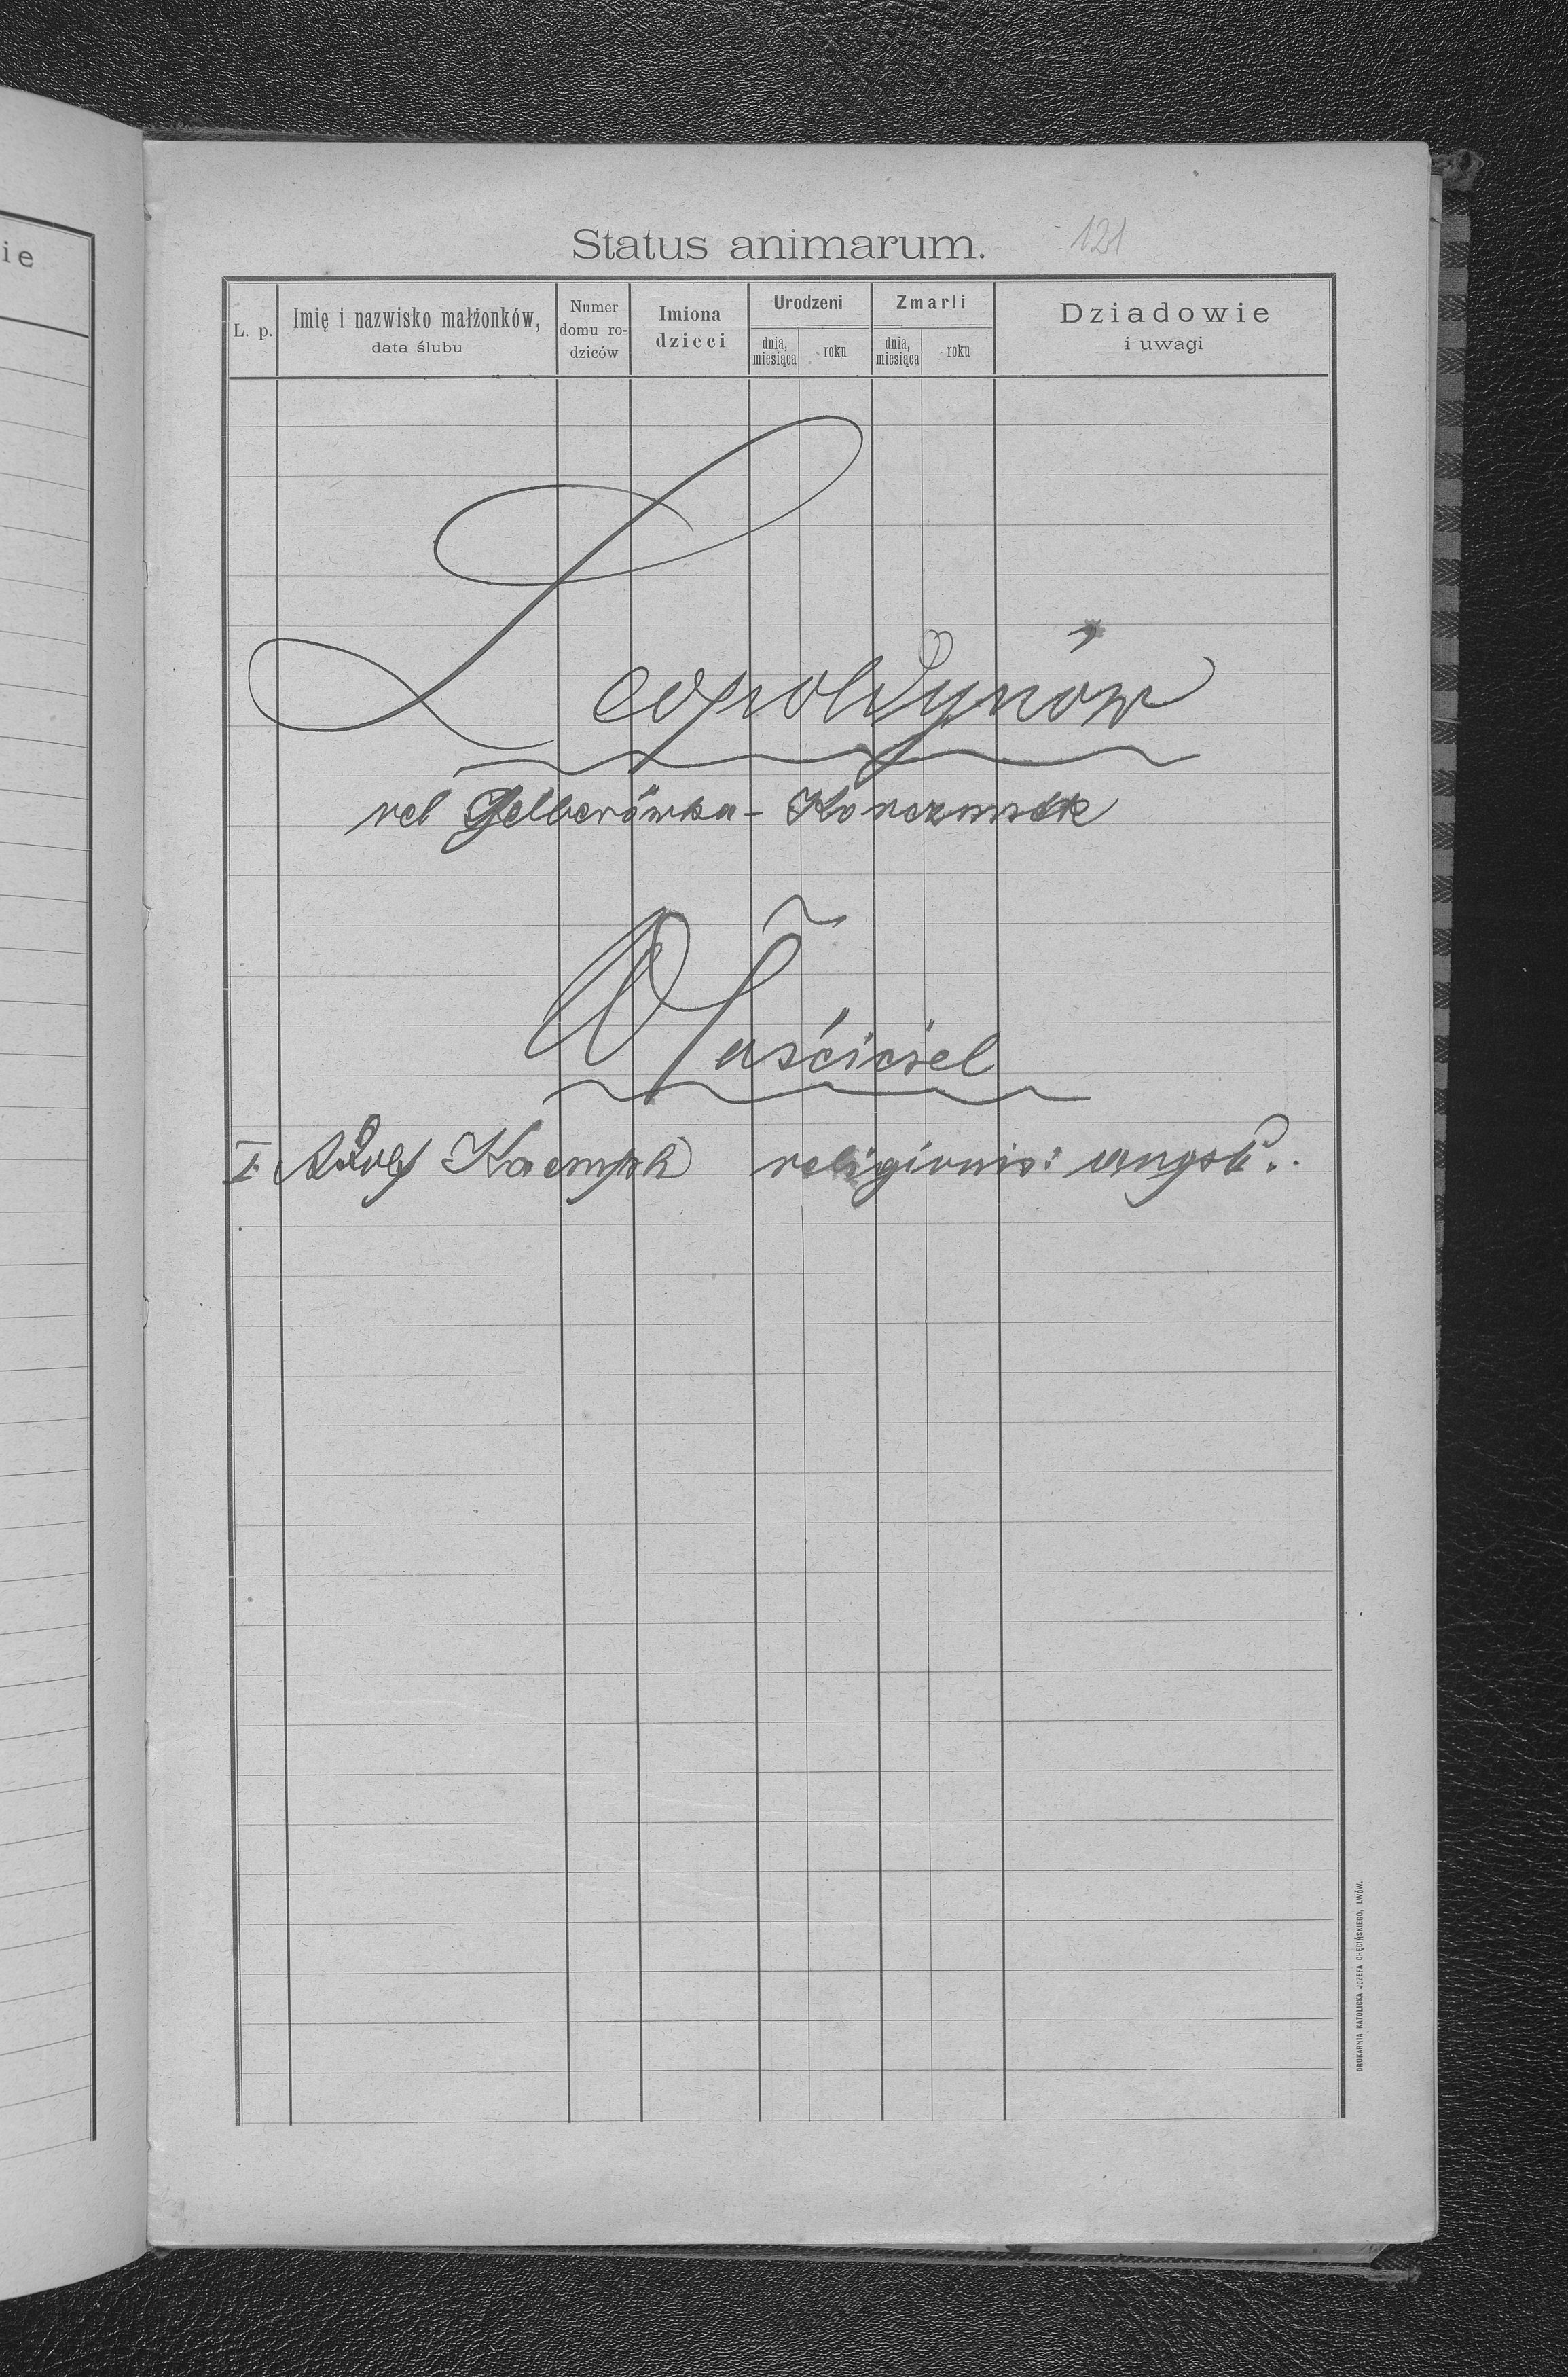 ie
Status animarum. 121
L. p.
Imię i nazwisko małżonków,
data ślubu
Numer
domu ro-
dziców
Imiona
dzieci
Urodzeni
dnia,
miesiąca
roku
Zmarli
dnia,
miesiąca
roku
Dziadowie
i uwagi
Leopoldynów
vel Gelberówka-
Właściciel
I. Adolf religionis:
DRUKARNIA KATOLICKA JÓZEFA CHĘCIŃSKIEGO, LWÓW.